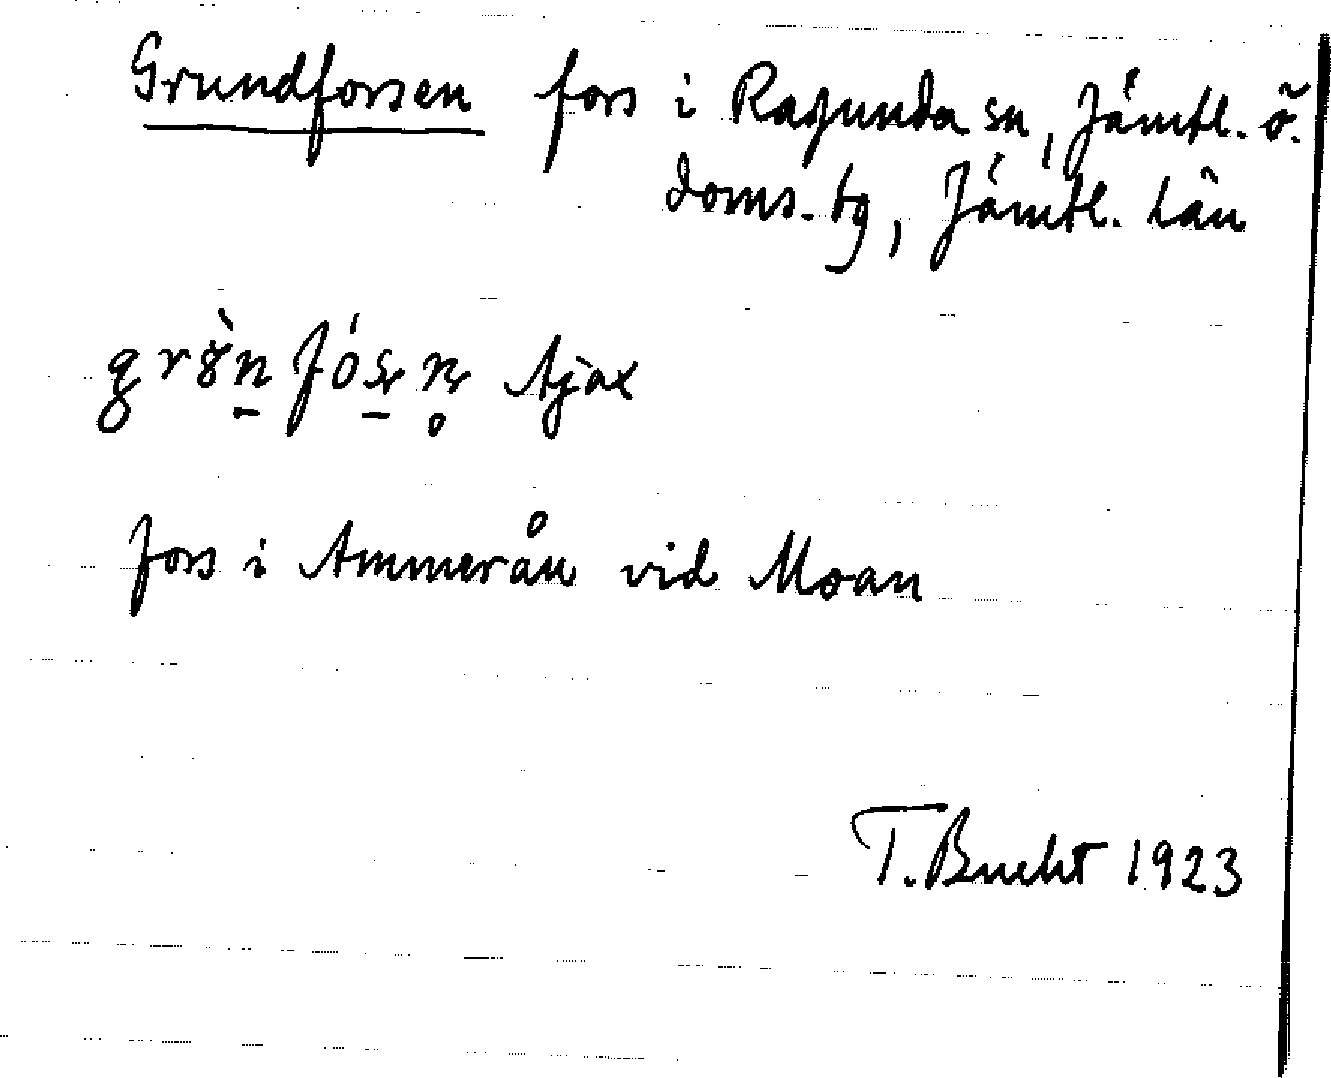 Grundforsen fors i Ragunda sn, Jämtl. ö.
doms.tg, Jämtl. län
Ajax
fors i Ammerån vid Moan
T. Bucht 1923